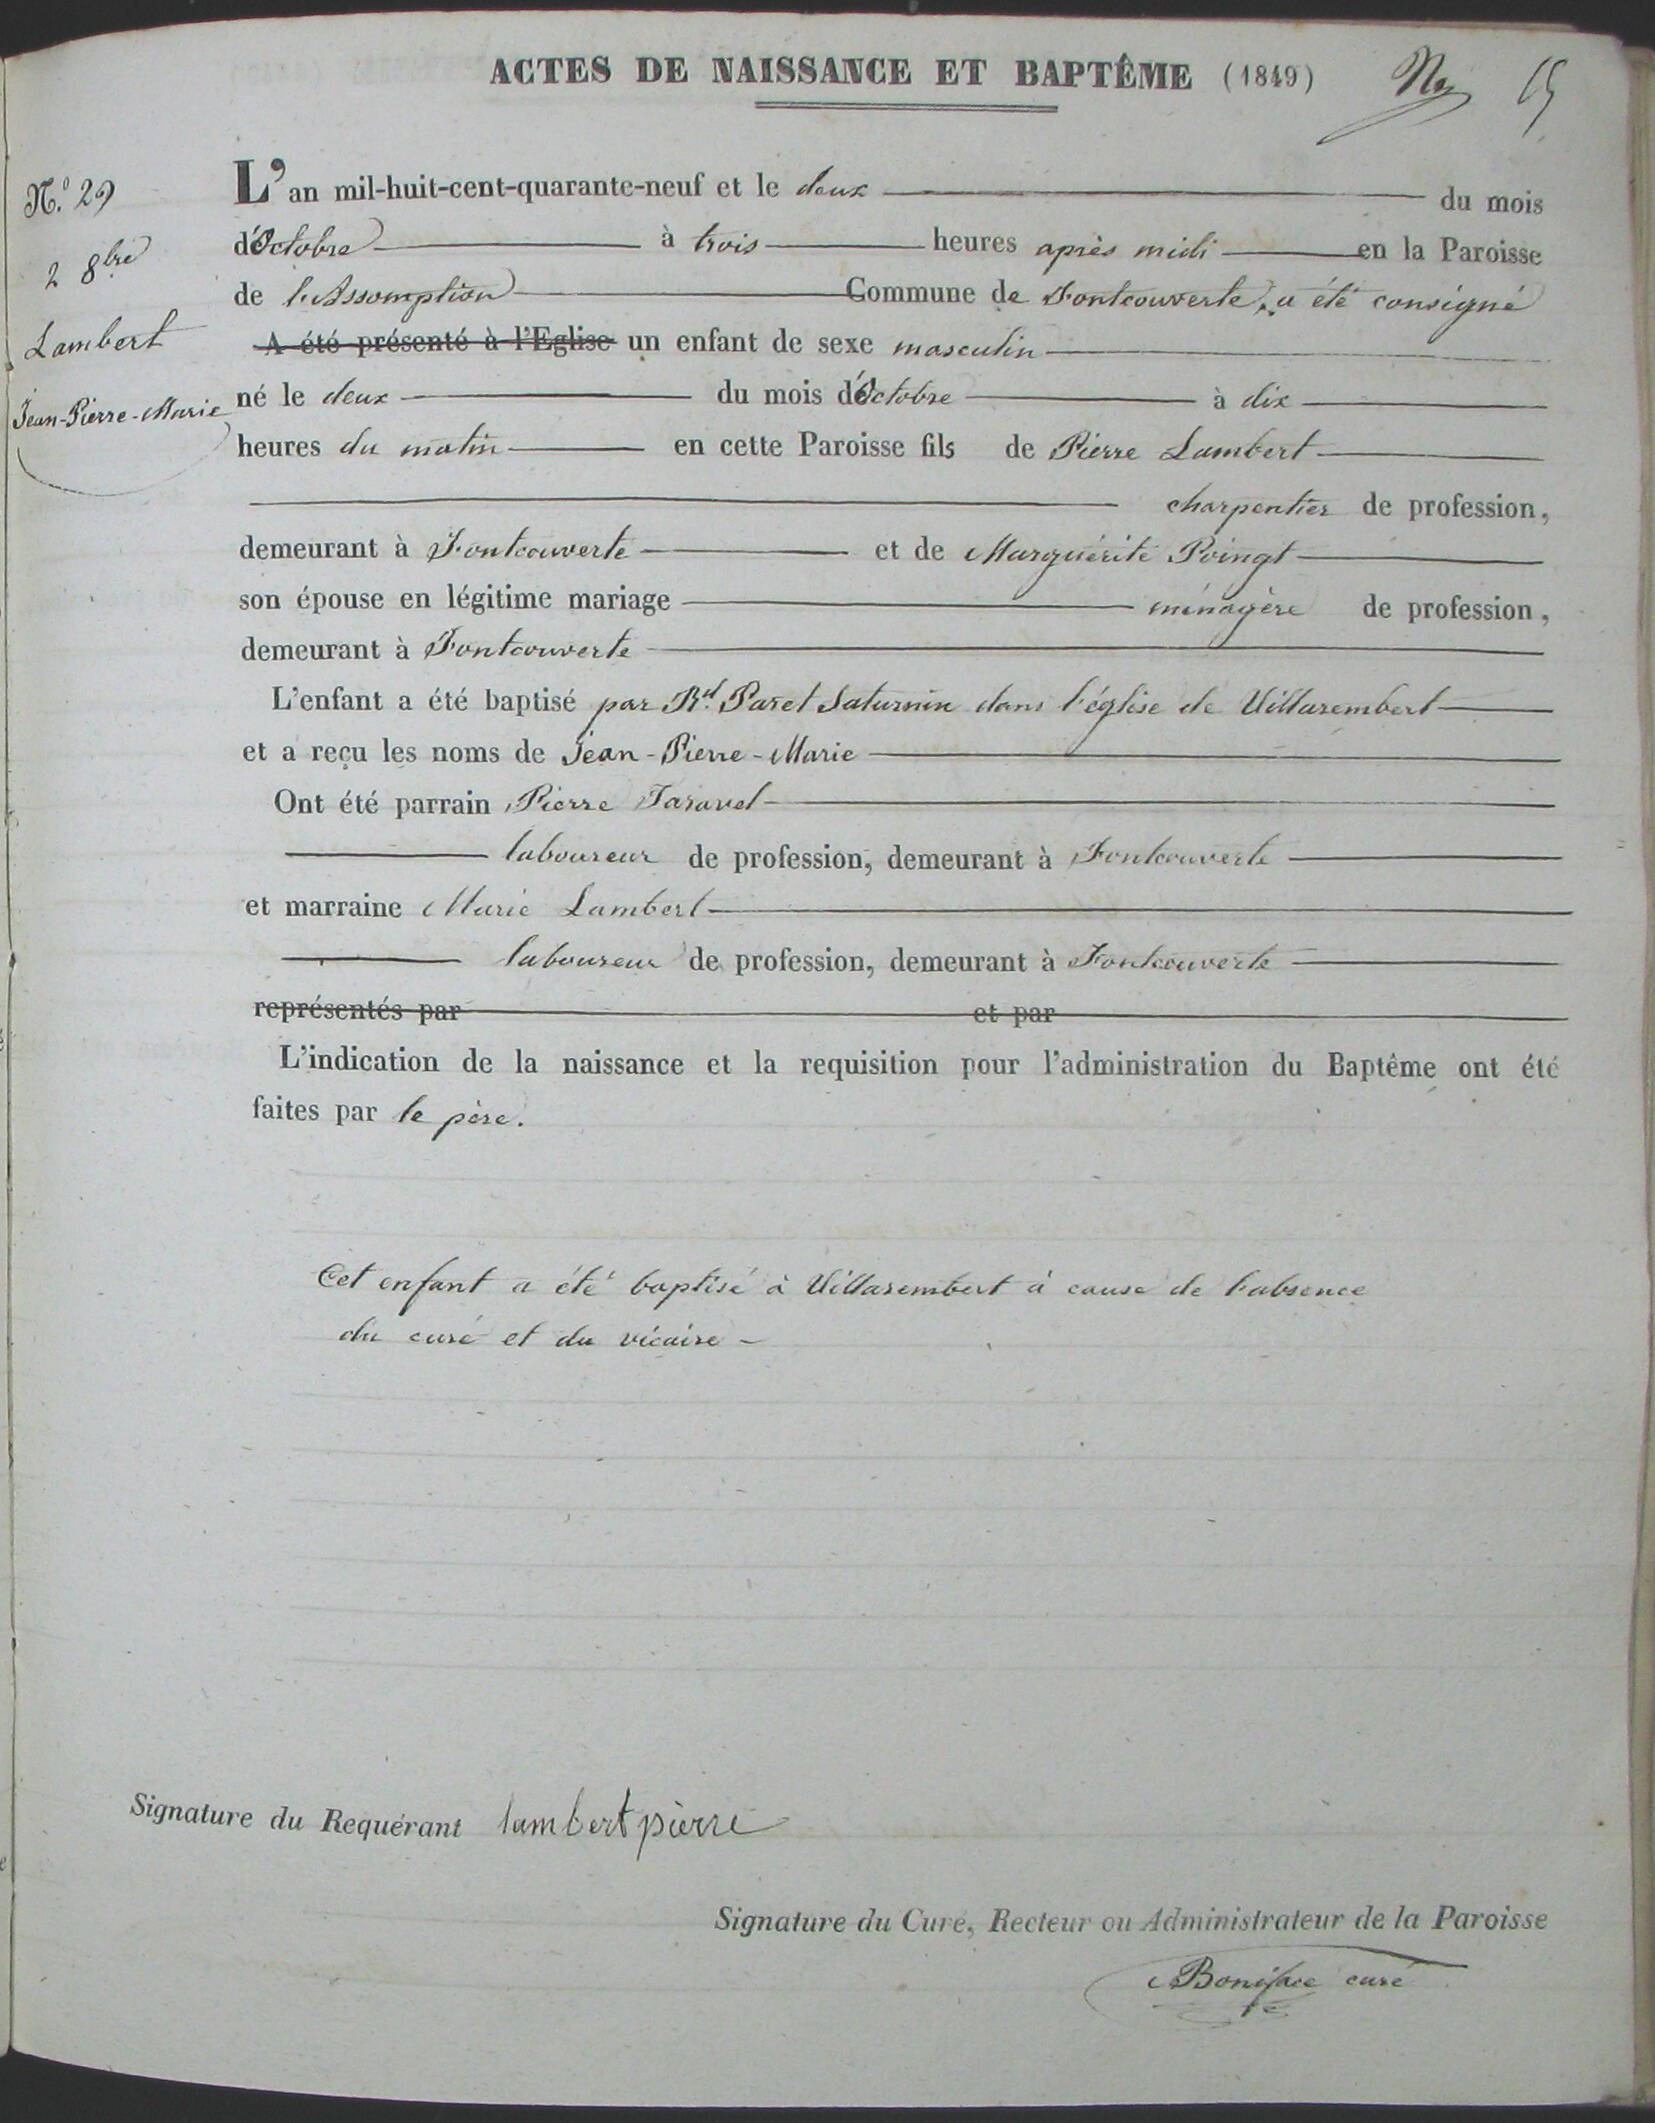 ACTES DE NAISSANCE ET BAPTÊME (1849) 15
N.o 29
2 8bre
Lambert
Jean-Pierre-Marie
L'an mil-huit-cent-quarante-neuf et le deux du mois
d'Octobre à trois heures après midi en la Paroisse
de l'Assomption Commune de Fontcouverte, a été consigné
A été présenté à l'Eglise un enfant de sexe masculin
né le deux du mois d'Octobre à dix
heures du matin en cette Paroisse fils de Pierre Lambert
charpentier de profession,
demeurant à Fontcouverte et de Marguérite Poingt
son épouse en légitime mariage ménagère de profession,
demeurant à Fontcouverte
L'enfant a été baptisé par Rd. Paret Saturnin dans l'église de Villarembert
et a reçu les noms de Jean-Pierre-Marie
Ont été parrain Pierre Taravel
laboureur de profession, demeurant à Fontcouverte
et marraine Marie Lambert
laboureur de profession, demeurant à Fontcouverte
représentés par et par
L'indication de la naissance et la requisition pour l'administration du Baptême ont été
faites par le père.
Cet enfant a été baptisé à Villarembert à cause de l'absence
du curé et du vicaire -
Signature du Requérant lambert pierre
Signature du Curé, Recteur ou Administrateur de la Paroisse
Boniface curé